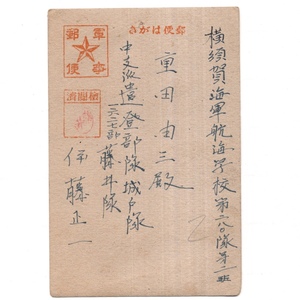 郵便はがき
軍事
郵便
検閲済
横須賀海軍航海学校第一八〇隊第二班
重田由三殿
中支派遣登部隊城戸隊
藤井隊
伊藤正一